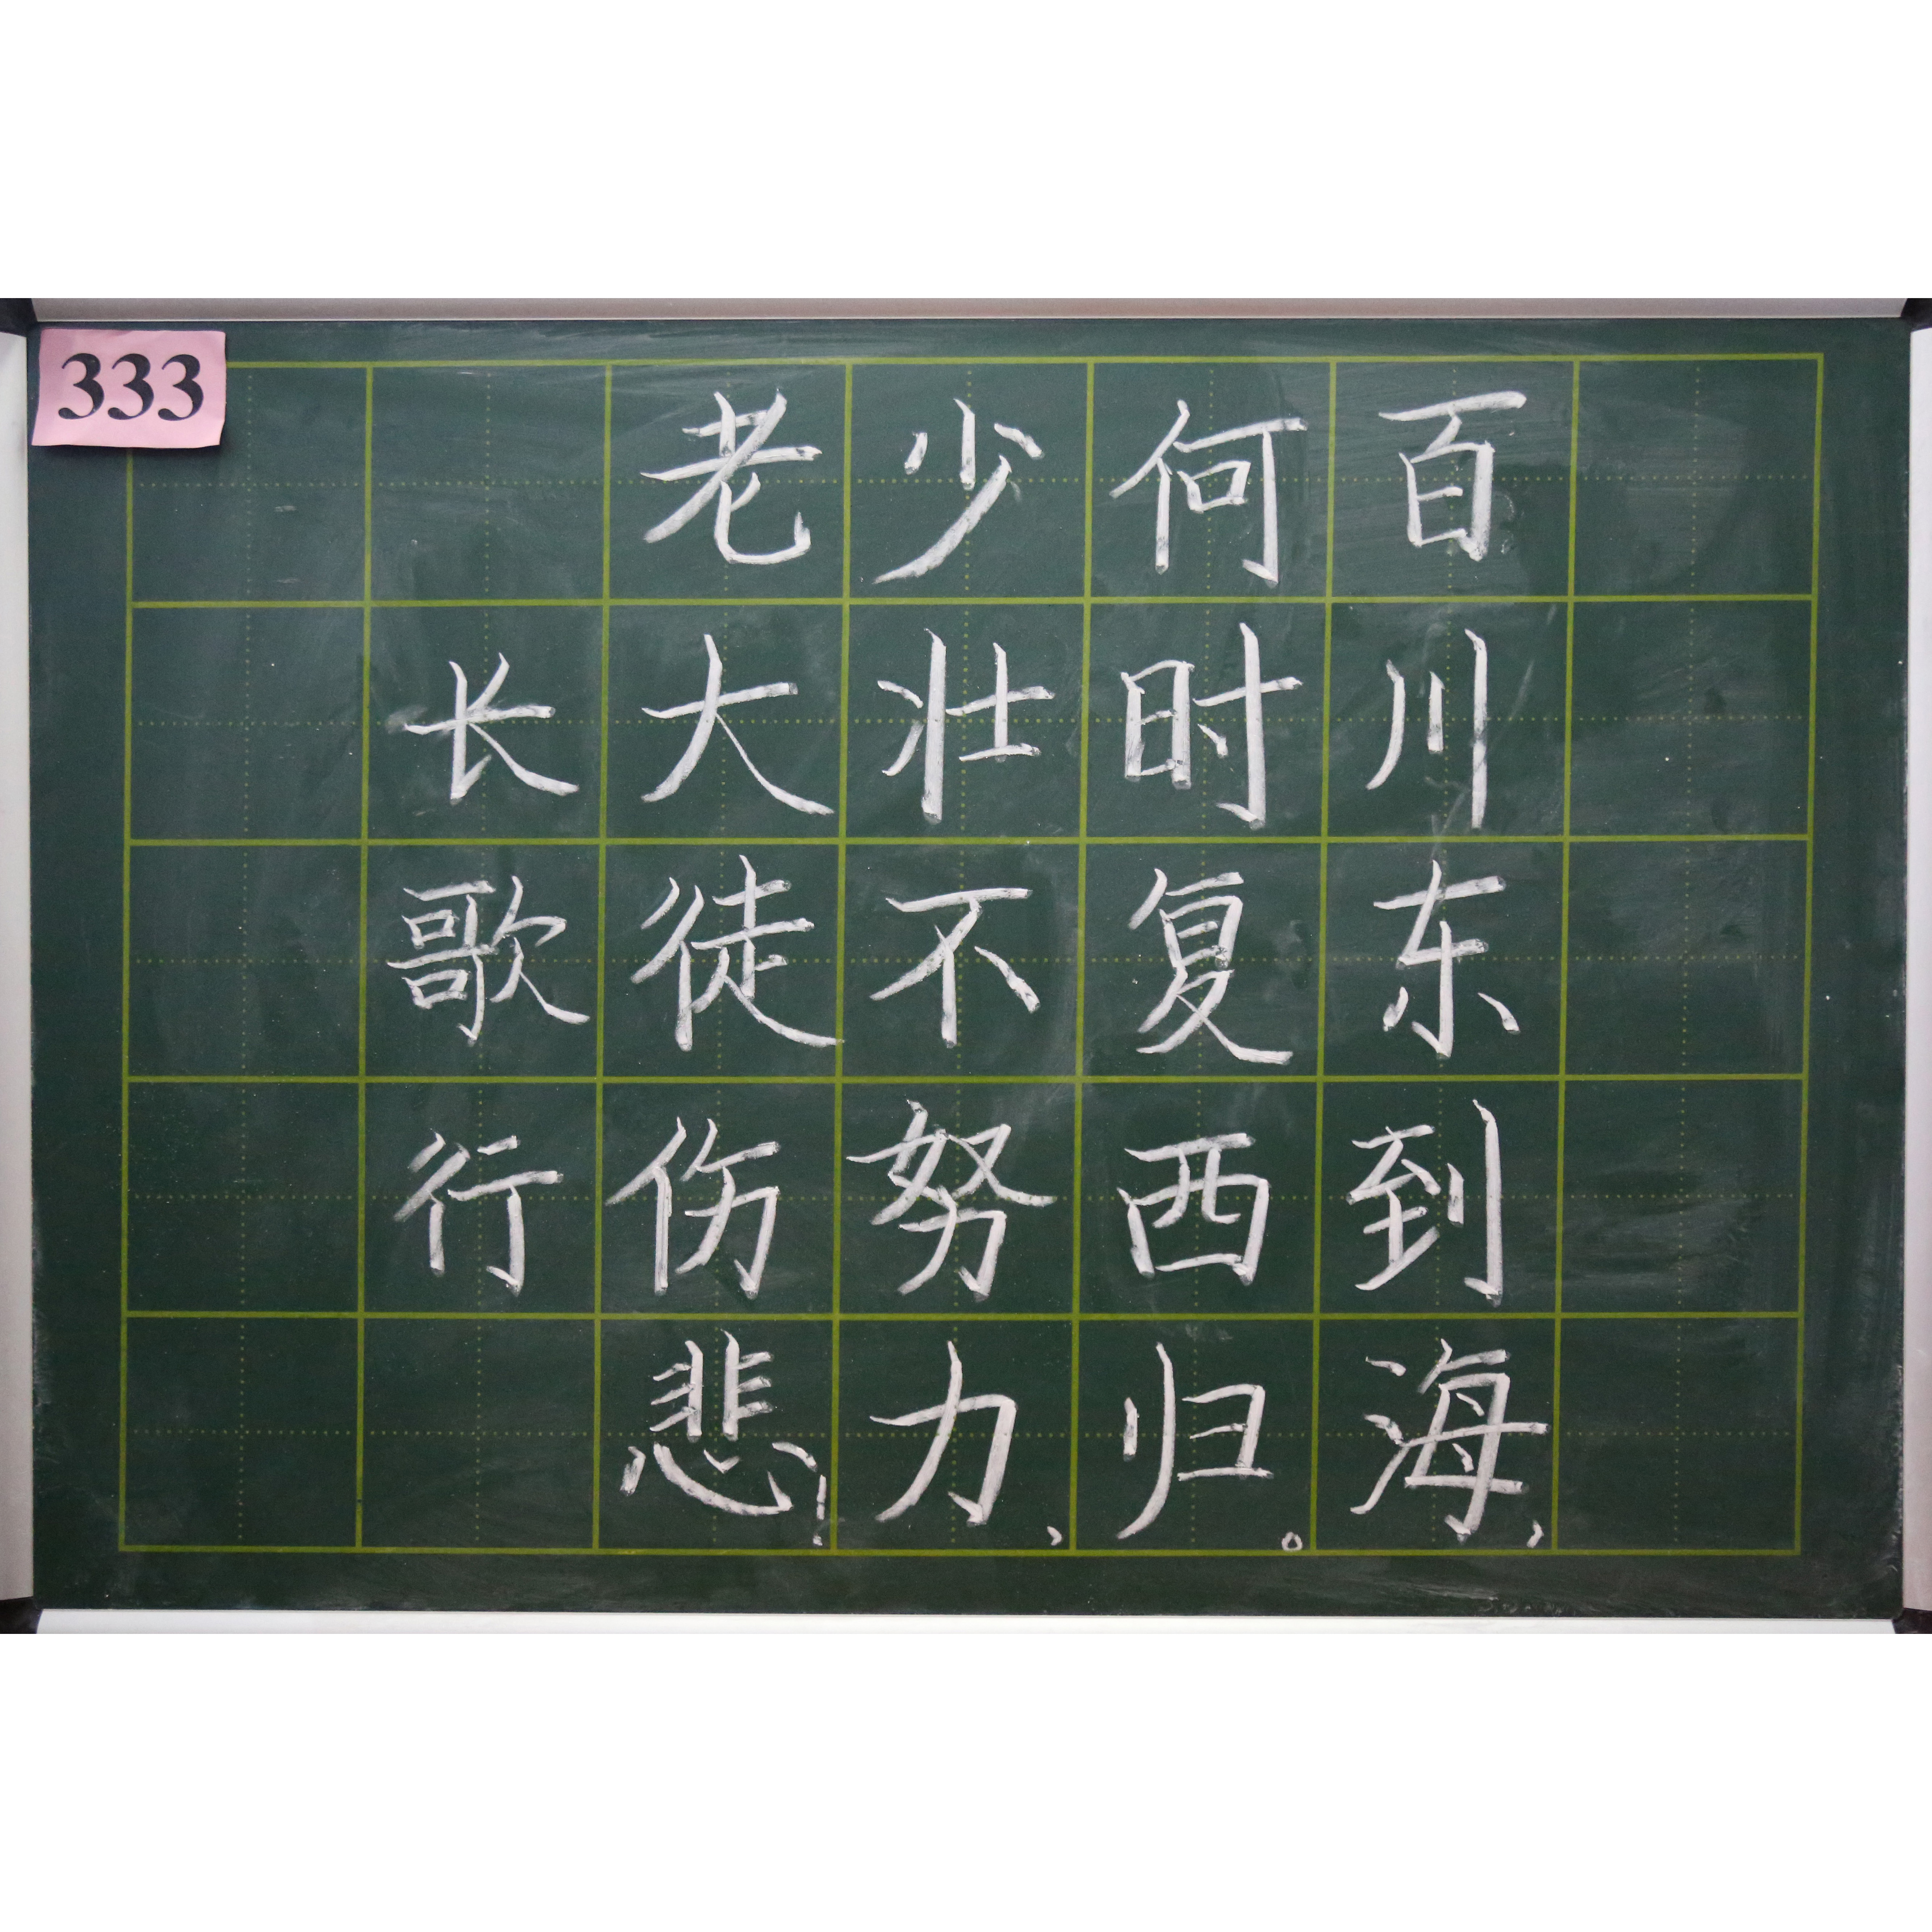 333
百川东到海，
何时复西归。
少壮不努力，
老大徒伤悲！
长歌行